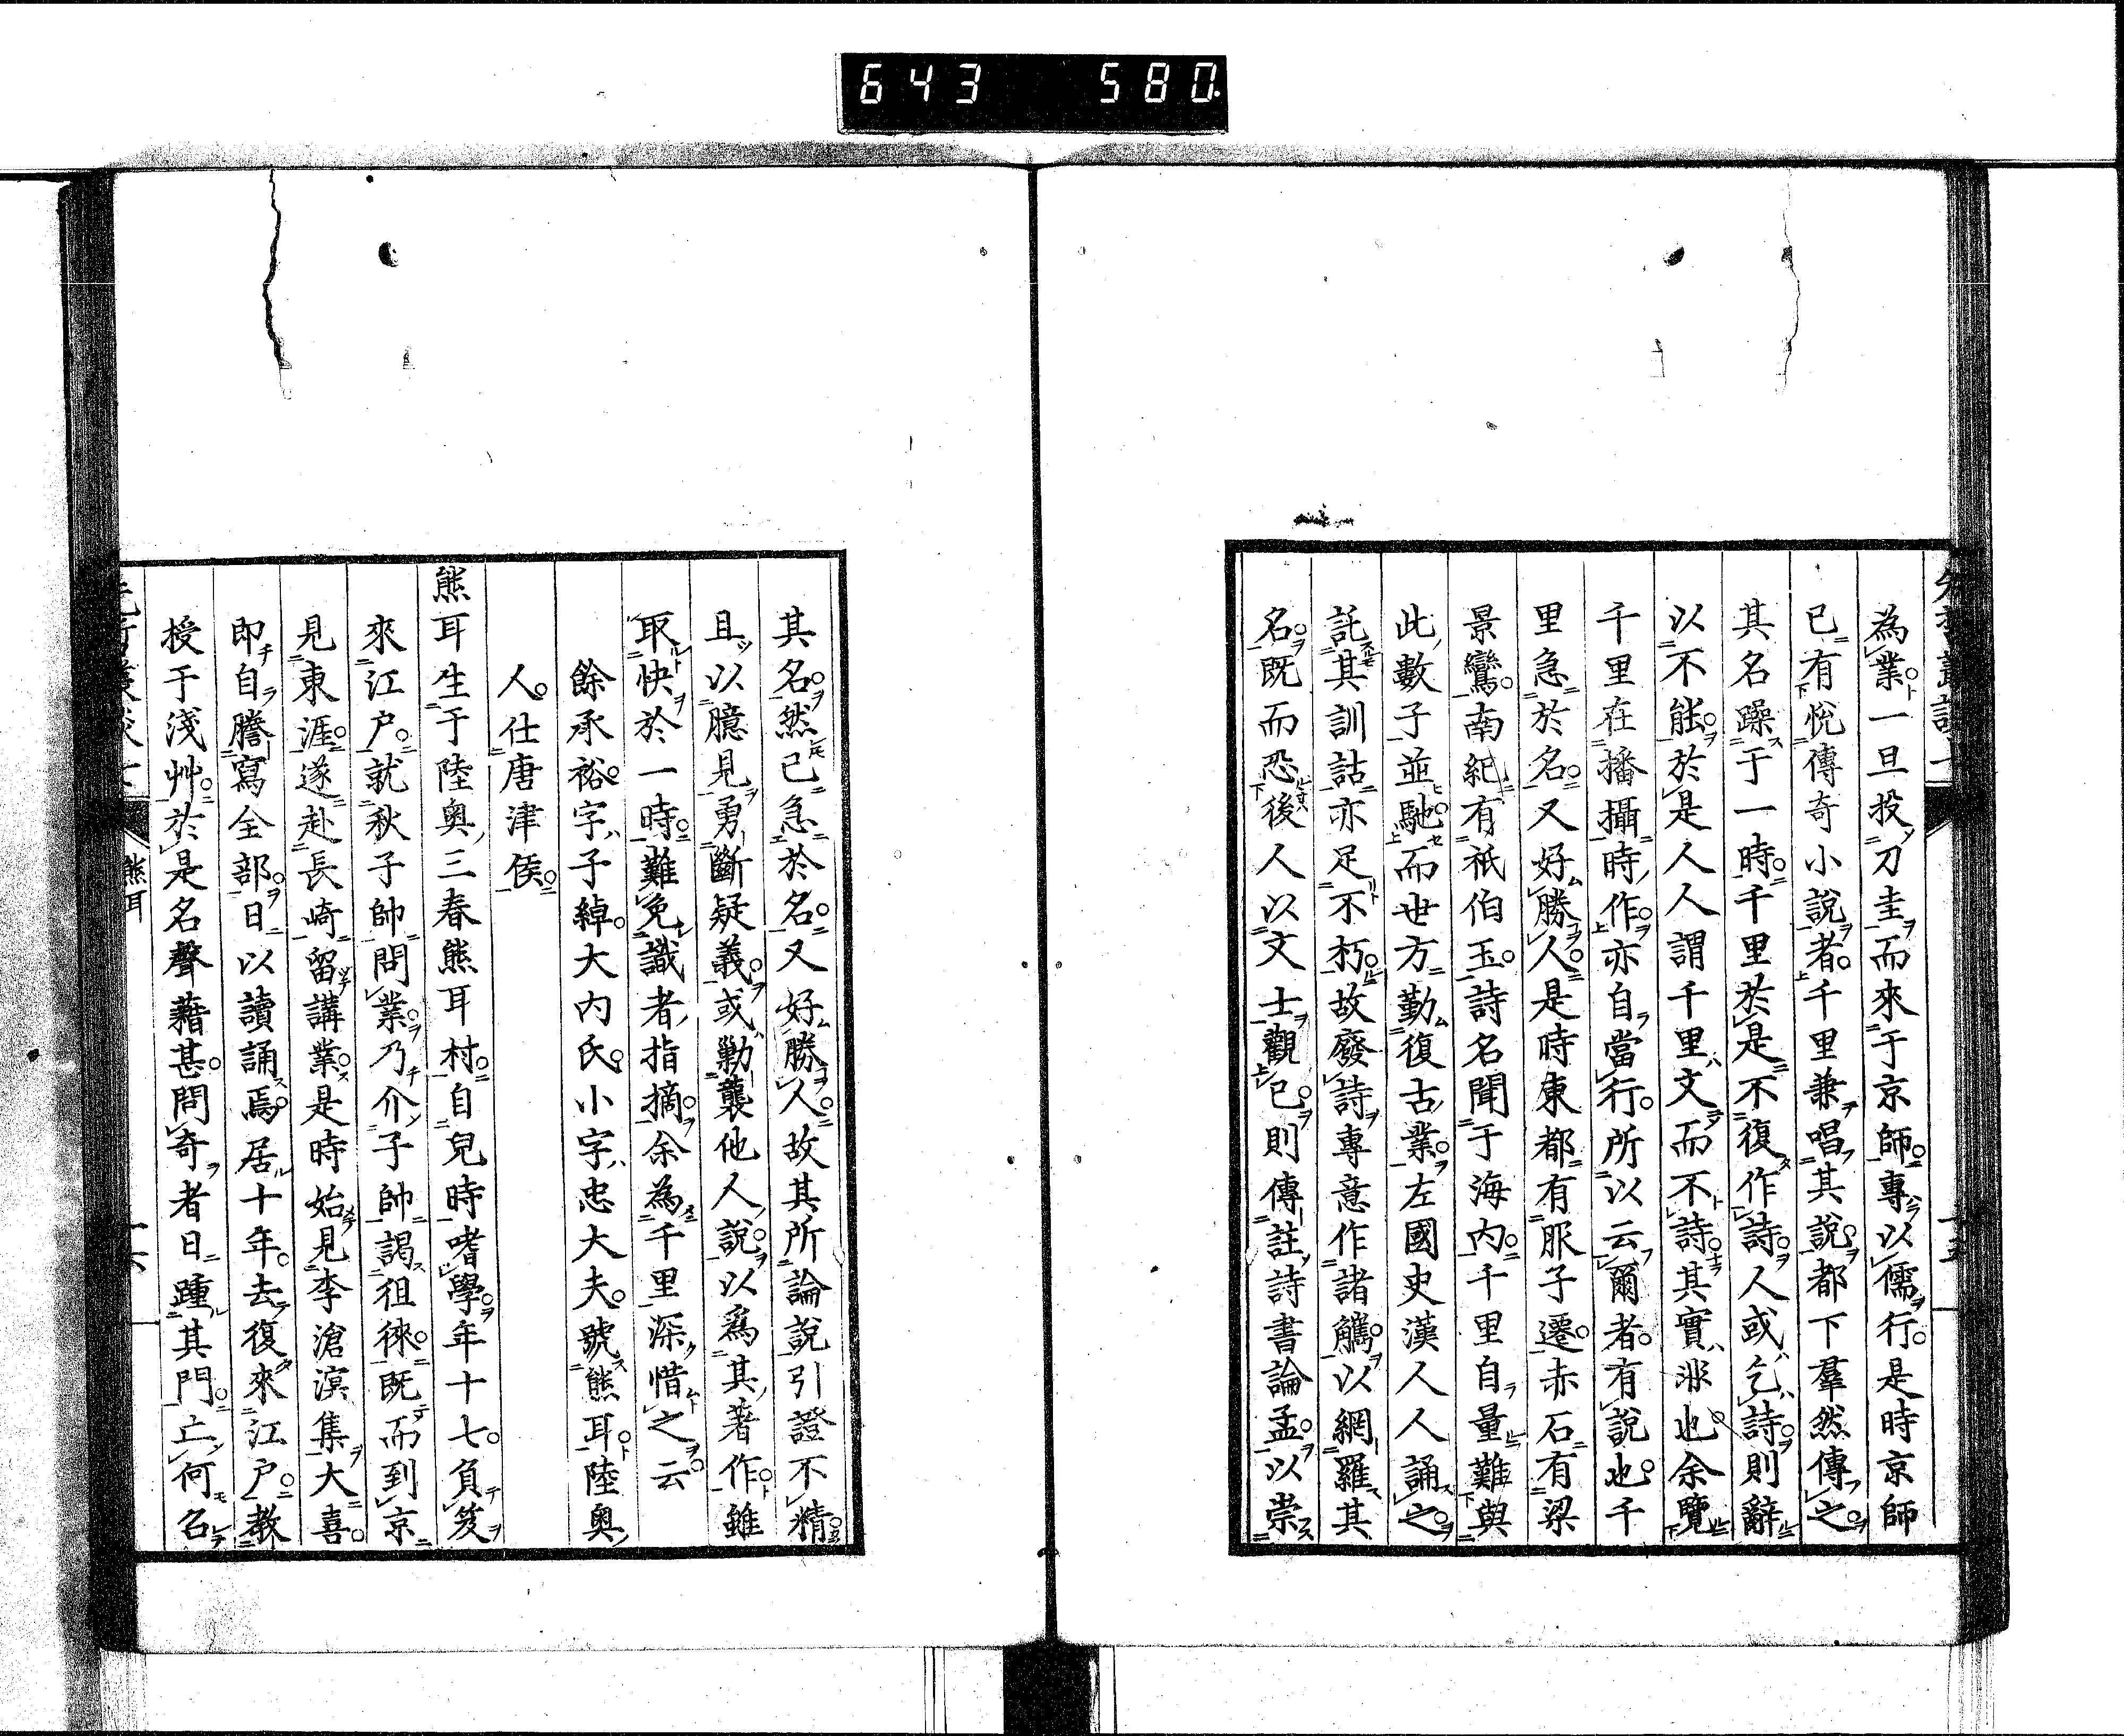 643 580.
爲業一旦投刀圭而來于京師專以儒行是時京師
已有悅傳奇小說者千里兼唱其說都下羣然傳之
其名躁于一時千里於是不復作詩人或乞詩則辭
以不能於是人人謂千里文而不詩其實非也余覽
千里在播攝時作亦自當行所以云爾者有說也千
里急於名又好勝人是時東都有服子遷赤石有梁
景鸞南紀有祇伯玉詩名聞于海內千里自量難與
此數子並馳而世方勤復古業左國史漢人人誦之
託其訓詁亦足不朽故廢詩專意作諸觿以網羅其
名既而恐後人以文士觀已則傳註詩書論孟以崇
其名然已急於名又好勝人故其所論說引證不精
且以臆見勇斷疑義或勦襲他人說以爲其著作雖
取快於一時難免識者指摘余為千里深惜之云
餘承裕字子綽大內氏小字忠大夫號熊耳陸奧
人仕唐津侯
熊耳生于陸奧三春熊耳村自兒時嗜學年十七負笈
來江戶就秋子帥問業乃介子帥謁徂徠既而到京
見東涯遂赴長崎留講業是時始見李滄溟集大喜
即自謄寫全部日以讀誦焉居十年去復來江戶教
授于淺艸於是名聲藉甚問奇者日踵其門亡何名
熊耳